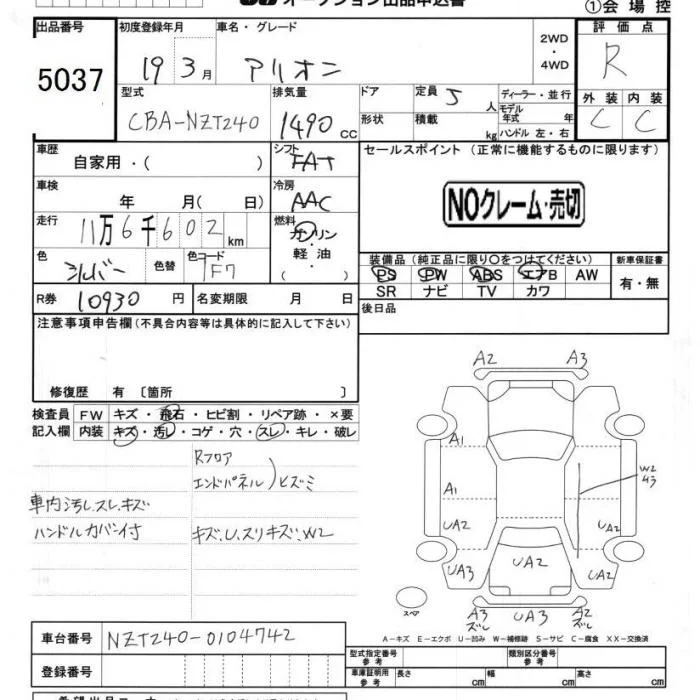 オークション出品申込書
①会場控
出品番号 初度登録年月 車名・グレード 2WD・4WD 評価点
5037 19 3月 アリオン R
型式 排気量 ドア 定員 5人 ディーラー・並行 外装 内装
CBA-NZT240 1490cc 形状 積載 kg モデル年式 年 ハンドル 左・右 C C
車歴 自家用・( ) シフト FAT セールスポイント (正常に機能するものに限ります)
車検 年 月( 日) 冷房 AAC NOクレーム・売切
走行 11万6千602km 燃料 ガソリン・軽油・( )
色 シルバー 色替 色コード 1F7 装備品(純正品に限り○をつけてください) 新車保証書
PS PW ABS エアB AW 有・無
SR ナビ TV カワ
R券 10930円 名変期限 月 日 後日品
注意事項申告欄(不具合内容等は具体的に記入して下さい)
修復歴 有 〔箇所 〕
検査員 FW キズ・飛石・ヒビ割・リペア跡・×要
記入欄 内装 キズ・汚レ・コゲ・穴・スレ・キレ・破レ
Rフロア
エンドパネル)ヒズミ
車内汚レ.スレ.キズ
ハンドルカバー付 キズ.U.スリキズ.W2
A2 A3
A1
W2
43
A1
UA2 UA2
UA3 UA2 UA3
スペア A3 ズレ UA3 A2 ズレ
A-キズ E-エクボ U-凹み W-補修跡 S-サビ C-腐食 XX-交換済
車台番号 NZT240-0104742
型式指定番号 参考 類別区分番号 参考
登録番号
車庫証明用 参考 長さ cm 幅 cm 高さ cm